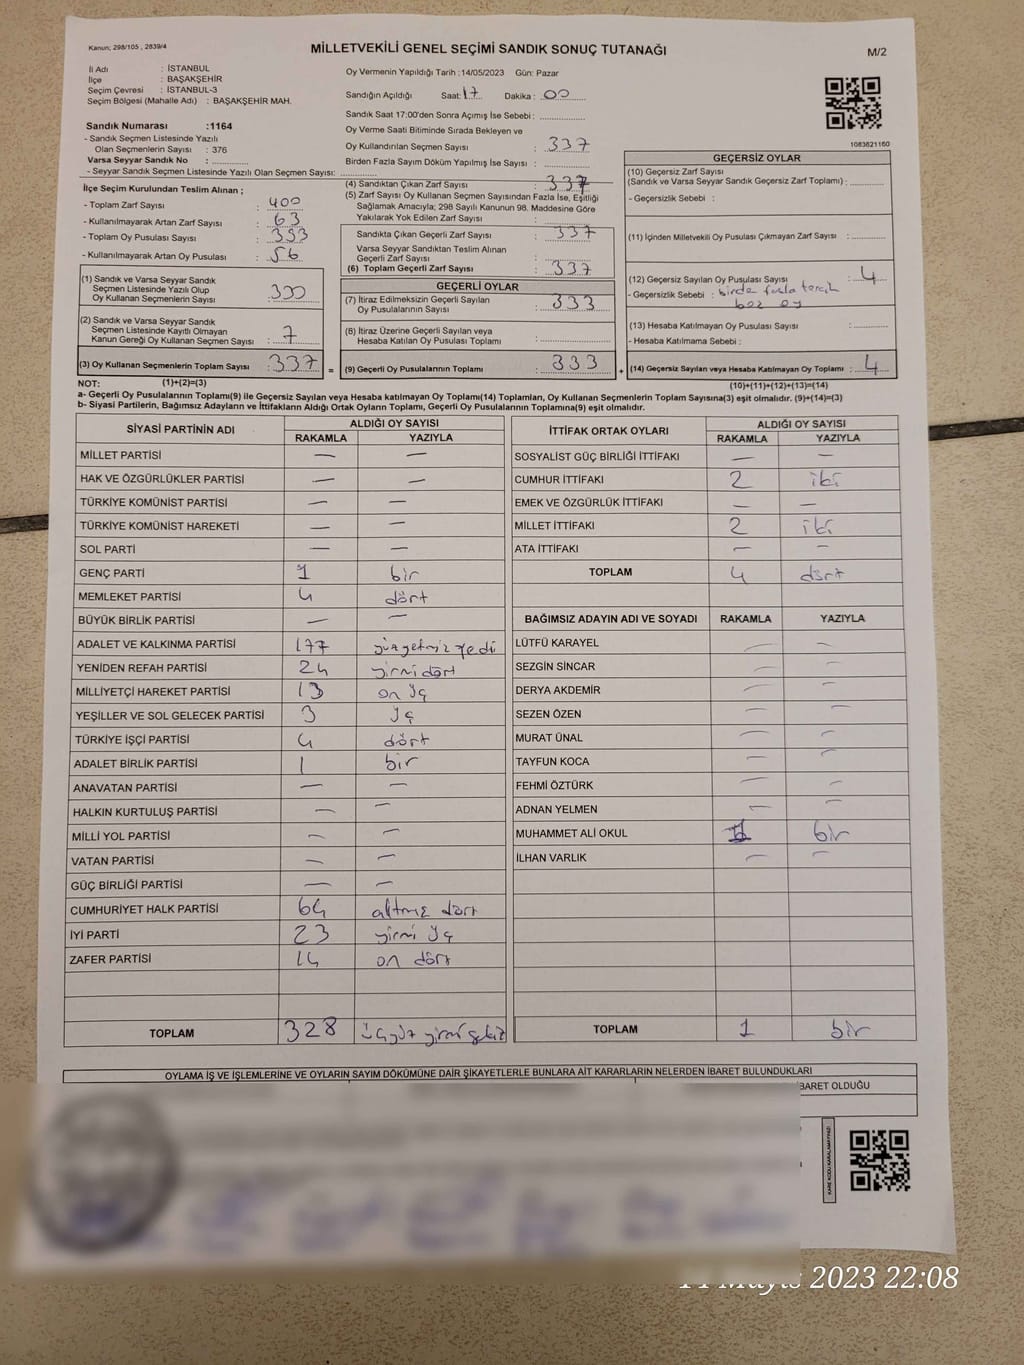 Kanun; 298/105 , 2839/4
MİLLETVEKİLİ GENEL SEÇİMİ SANDIK SONUÇ TUTANAĞI
M/2
İl Adı : İSTANBUL
İlçe : BAŞAKŞEHİR
Seçim Çevresi : İSTANBUL-3
Seçim Bölgesi (Mahalle Adı) : BAŞAKŞEHİR MAH.
Sandık Numarası :1164
- Sandık Seçmen Listesinde Yazılı
Olan Seçmenlerin Sayısı : 376
Varsa Seyyar Sandık No :
- Seyyar Sandık Seçmen Listesinde Yazılı Olan Seçmen Sayısı:
İlçe Seçim Kurulundan Teslim Alınan ;
- Toplam Zarf Sayısı : 400
- Kullanılmayarak Artan Zarf Sayısı : 63
- Toplam Oy Pusulası Sayısı : 393
- Kullanılmayarak Artan Oy Pusulası : 56
(1) Sandık ve Varsa Seyyar Sandık
Seçmen Listesinde Yazılı Olup
Oy Kullanan Seçmenlerin Sayısı : 330
(2) Sandık ve Varsa Seyyar Sandık
Seçmen Listesinde Kayıtlı Olmayan
Kanun Gereği Oy Kullanan Seçmen Sayısı : 7
(3) Oy Kullanan Seçmenlerin Toplam Sayısı : 337
Oy Vermenin Yapıldığı Tarih :14/05/2023 Gün: Pazar
Sandığın Açıldığı Saat: 17 Dakika : 00
Sandık Saat 17:00'den Sonra Açımış İse Sebebi :
Oy Verme Saati Bitiminde Sırada Bekleyen ve
Oy Kullandırılan Seçmen Sayısı : 337
Birden Fazla Sayım Döküm Yapılmış İse Sayısı :
(4) Sandıktan Çıkan Zarf Sayısı : 337
(5) Zarf Sayısı Oy Kullanan Seçmen Sayısından Fazla İse, Eşitliği
Sağlamak Amacıyla; 298 Sayılı Kanunun 98. Maddesine Göre
Yakılarak Yok Edilen Zarf Sayısı :
Sandıkta Çıkan Geçerli Zarf Sayısı : 337
Varsa Seyyar Sandıktan Teslim Alınan
Geçerli Zarf Sayısı :
(6) Toplam Geçerli Zarf Sayısı : 337
GEÇERLİ OYLAR
(7) İtiraz Edilmeksizin Geçerli Sayılan
Oy Pusulalarının Sayısı : 333
(8) İtiraz Üzerine Geçerli Sayılan veya
Hesaba Katılan Oy Pusulası Toplamı :
(9) Geçerli Oy Pusulalarının Toplamı : 333
1083621160
GEÇERSİZ OYLAR
(10) Geçersiz Zarf Sayısı
(Sandık ve Varsa Seyyar Sandık Geçersiz Zarf Toplamı) :
- Geçersizlik Sebebi :
(11) İçinden Milletvekili Oy Pusulası Çıkmayan Zarf Sayısı :
(12) Geçersiz Sayılan Oy Pusulası Sayısı : 4
- Geçersizlik Sebebi : birde fazla tercih
boz oy
(13) Hesaba Katılmayan Oy Pusulası Sayısı :
- Hesaba Katılmama Sebebi :
(14) Geçersiz Sayılan veya Hesaba Katılmayan Oy Toplamı : 4
NOT: (1)+(2)=(3) (10)+(11)+(12)+(13)=(14)
a- Geçerli Oy Pusulalarının Toplamı(9) ile Geçersiz Sayılan veya Hesaba katılmayan Oy Toplamı(14) Toplamları, Oy Kullanan Seçmenlerin Toplam Sayısına(3) eşit olmalıdır. (9)+(14)=(3)
b- Siyasi Partilerin, Bağımsız Adayların ve İttifakların Aldığı Ortak Oyların Toplamı, Geçerli Oy Pusulalarının Toplamına(9) eşit olmalıdır.
SİYASİ PARTİNİN ADI ALDIĞI OY SAYISI
RAKAMLA YAZIYLA
MİLLET PARTİSİ — —
HAK VE ÖZGÜRLÜKLER PARTİSİ — —
TÜRKİYE KOMÜNİST PARTİSİ — —
TÜRKİYE KOMÜNİST HAREKETİ — —
SOL PARTİ — —
GENÇ PARTİ 1 bir
MEMLEKET PARTİSİ 4 dört
BÜYÜK BİRLİK PARTİSİ — —
ADALET VE KALKINMA PARTİSİ 177 yüzyetmiz yedi
YENİDEN REFAH PARTİSİ 24 yirmi dört
MİLLİYETÇİ HAREKET PARTİSİ 13 on üç
YEŞİLLER VE SOL GELECEK PARTİSİ 3 üç
TÜRKİYE İŞÇİ PARTİSİ 4 dört
ADALET BİRLİK PARTİSİ 1 bir
ANAVATAN PARTİSİ — —
HALKIN KURTULUŞ PARTİSİ — —
MİLLİ YOL PARTİSİ — —
VATAN PARTİSİ — —
GÜÇ BİRLİĞİ PARTİSİ — —
CUMHURİYET HALK PARTİSİ 64 altmış dört
İYİ PARTİ 23 yirmi üç
ZAFER PARTİSİ 14 on dört
TOPLAM 328 üçyüz yirmi sekiz
İTTİFAK ORTAK OYLARI ALDIĞI OY SAYISI
RAKAMLA YAZIYLA
SOSYALİST GÜÇ BİRLİĞİ İTTİFAKI — —
CUMHUR İTTİFAKI 2 iki
EMEK VE ÖZGÜRLÜK İTTİFAKI — —
MİLLET İTTİFAKI 2 iki
ATA İTTİFAKI — —
TOPLAM 4 dört
BAĞIMSIZ ADAYIN ADI VE SOYADI RAKAMLA YAZIYLA
LÜTFÜ KARAYEL — —
SEZGİN SİNCAR — —
DERYA AKDEMİR — —
SEZEN ÖZEN — —
MURAT ÜNAL — —
TAYFUN KOCA — —
FEHMİ ÖZTÜRK — —
ADNAN YELMEN — —
MUHAMMET ALİ OKUL 1 bir
İLHAN VARLIK — —
TOPLAM 1 bir
OYLAMA İŞ VE İŞLEMLERİNE VE OYLARIN SAYIM DÖKÜMÜNE DAİR ŞİKAYETLERLE BUNLARA AİT KARARLARIN NELERDEN İBARET BULUNDUKLARI
BARET OLDUĞU
KARE KODU KARALAMAYINIZ!
14 Mayıs 2023 22:08